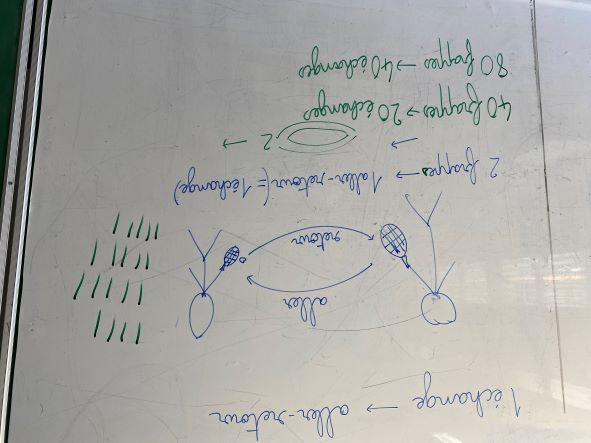 1 échange → aller-retour
aller
retour
2 frappes → 1 aller-retour (= 1 échange)
→ 2 →
40 frappes → 20 échanges
80 frappes → 40 échanges